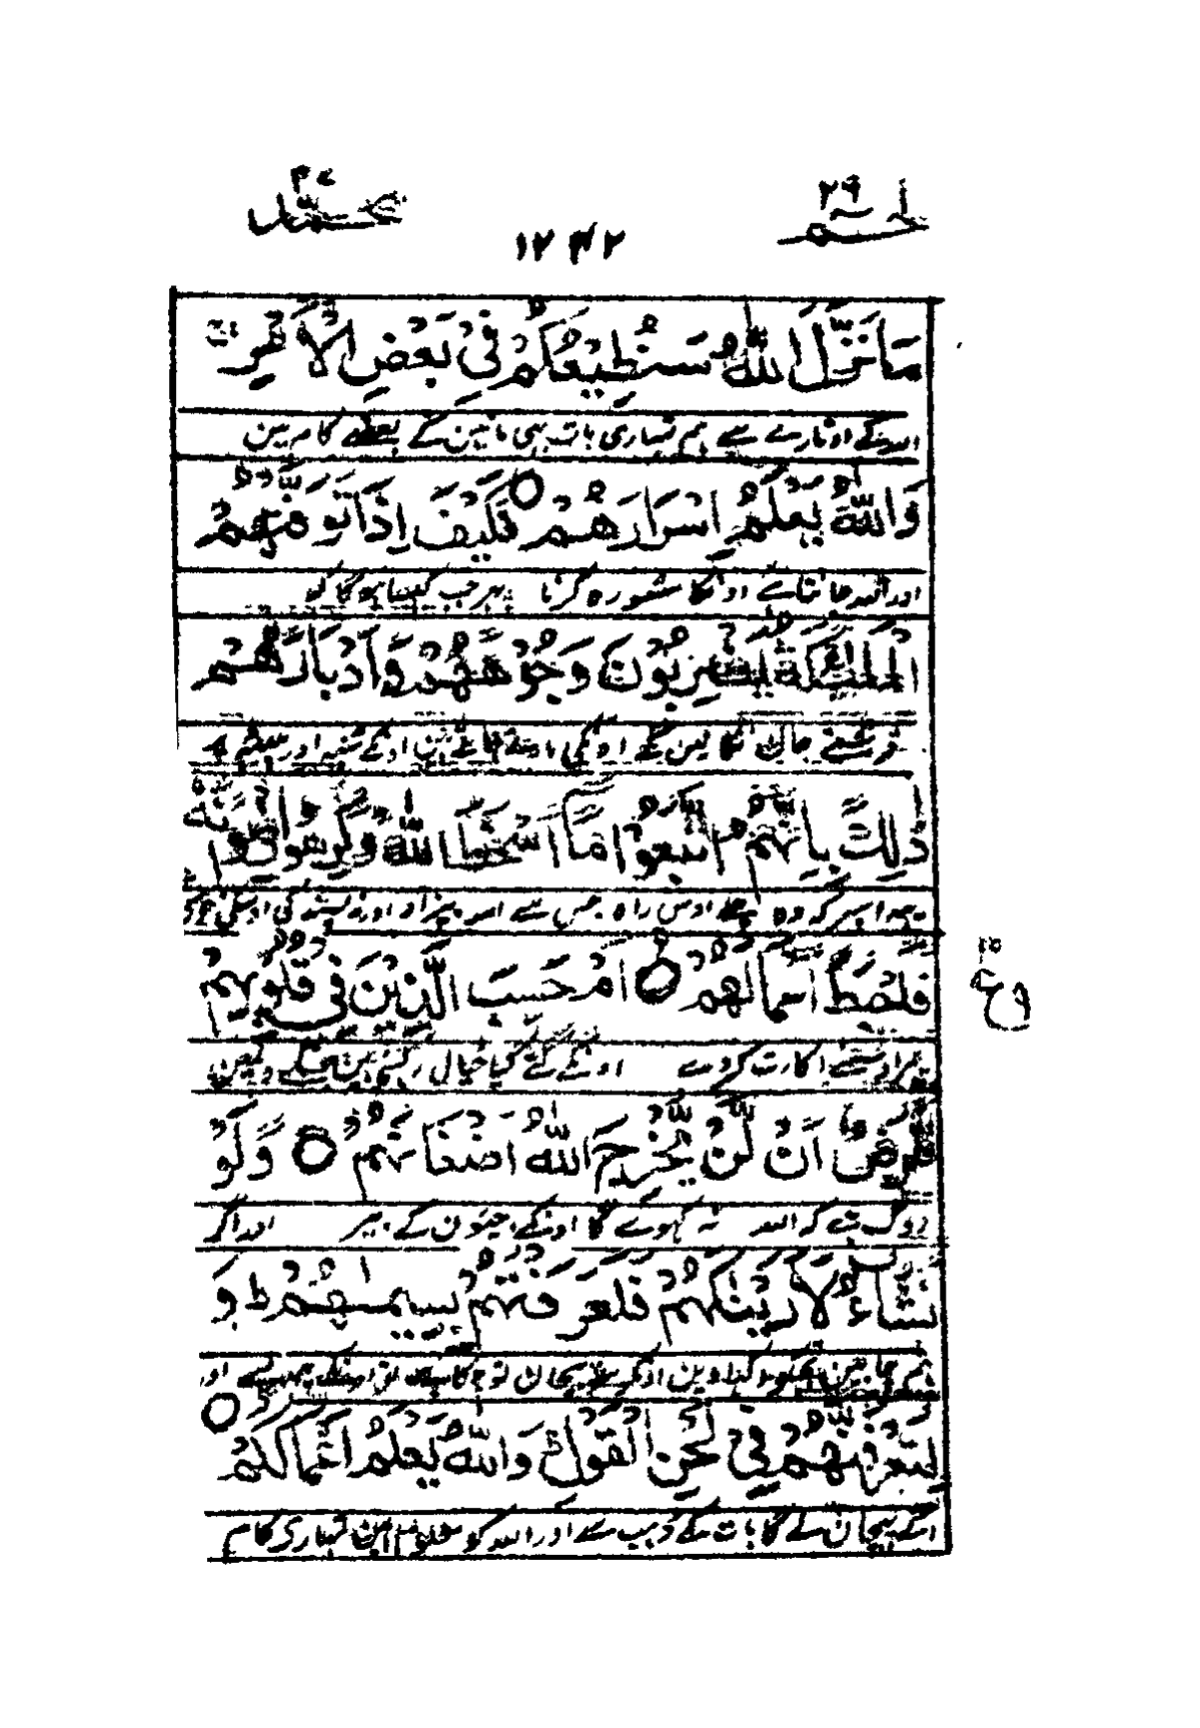 محمد ۴۷
حٰم ۲۹
۱۲۴۲
مَا نَزَّلَ اللّٰهُ سَنُطِيْعُكُمْ فِيْ بَعْضِ الْاَمْرِ
اللہ کے اوتارے سے ہم تمہاری بات بہی مانین گے بعضے کام مین
وَاللّٰهُ يَعْلَمُ اِسْرَارَهُمْ ○ فَكَيْفَ اِذَا تَوَفَّتْهُمُ
اور اللہ جانتا ہے اونکا مشورہ کرنا پہر جب کیسا ہوگا کہ
الْمَلٰٓئِكَةُ يَضْرِبُوْنَ وُجُوْهَهُمْ وَاَدْبَارَهُمْ
فرشتے جان نکالین گے اونکی مارتے جاتے ہین اونکے منہہ اور پیٹھہ
ذٰلِكَ بِاَنَّهُمُ اتَّبَعُوْا مَآ اَسْخَطَ اللّٰهَ وَكَرِهُوْا رِضْوَانَهٗ
یہہ اسپر کہ وہ چلے اوس راہ جس سے اللہ بیزار اور نہ پسند کی اوسکی خوشی
فَاَحْبَطَ اَعْمَالَهُمْ ○ اَمْ حَسِبَ الَّذِيْنَ فِيْ قُلُوْبِهِمْ
پہر اوسنے اکارت کر دئے اونکے کئے کیا خیال رکہتے ہین جنکے دلمین
مَّرَضٌ اَنْ لَّنْ يُّخْرِجَ اللّٰهُ اَضْغَانَهُمْ ○ وَلَوْ
روگ ہے کہ اللہ نہ کہولے گا اونکے جیون کے بیر اور اگر
نَشَآءُ لَاَرَيْنٰكَهُمْ فَلَعَرَفْتَهُمْ بِسِيْمٰهُمْ ط وَ
ہم چاہین تجہکو دکہا دین اونکو سو پہچان تو چکا ہے اونکے چہرے سے اور
لَتَعْرِفَنَّهُمْ فِيْ لَحْنِ الْقَوْلِ ط وَاللّٰهُ يَعْلَمُ اَعْمَالَكُمْ ○
آگے پہچان لے گا بات کے ڈہب سے اور اللہ کو معلوم ہین تمہاری کام